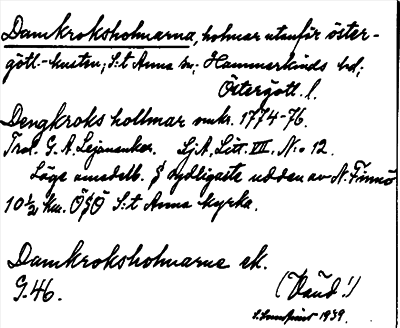 Damkroksholmarna, holmar utanför öster-
götl-kusten; S:t Anna sn; Hammarkinds hd;
Östergötl. l.
Dengkroks hollmar omkr. 1774-76.
Trol. G. A. Lejonancker. Sj.A. Litt. VII. N:o 12.
Läge omedelb. S sydligaste udden av N. Finnö
10½ km. ÖSÖ S:t Anna kyrka.
Damkroksholmarne ek.
G. 46.
1939.